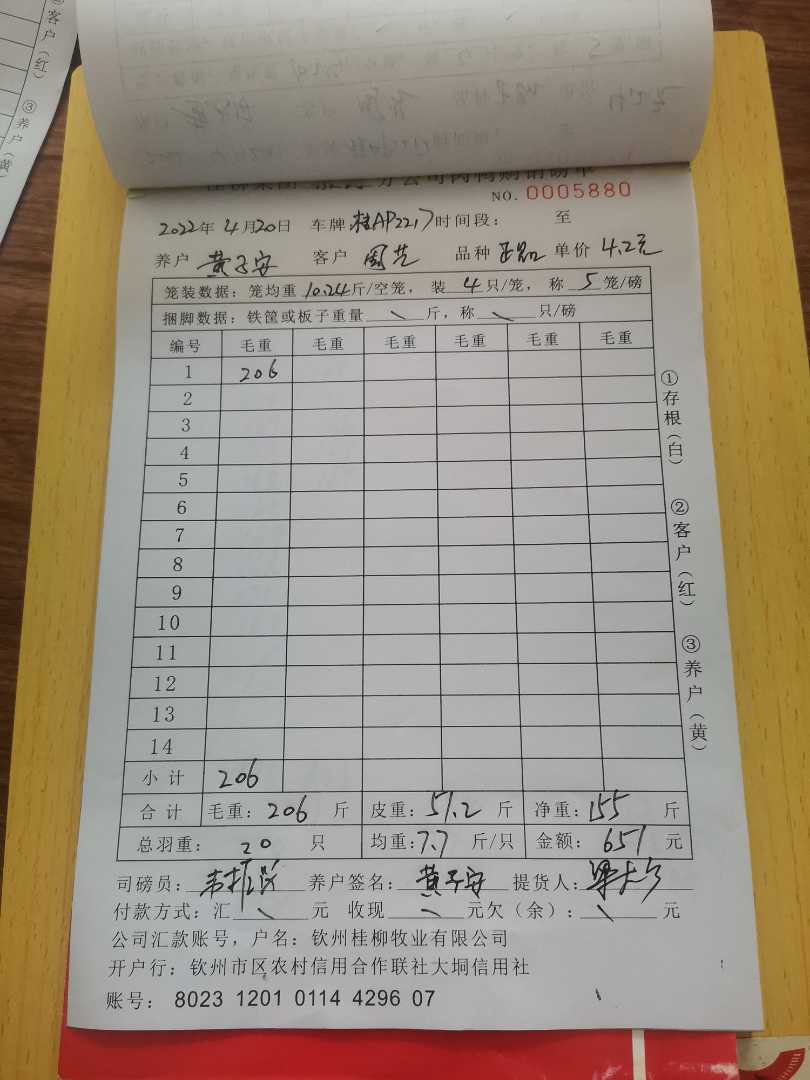 NO. 0005880
2022年4月20日 车牌:桂AP2217时间段: 至
养户 黄子安 客户 周艺 品种 正品 单价 4.2元
笼装数据:笼均重10.24斤/空笼,装 4 只/笼,称 5 笼/磅
捆脚数据:铁筐或板子重量 \ 斤,称 \ 只/磅
编号 毛重 毛重 毛重 毛重 毛重 毛重
1 206
2
3
4
5
6
7
8
9
10
11
12
13
14
小计 206
合计 毛重:206 斤 皮重:51.2 斤 净重:155 斤
总羽重: 20 只 均重:7.7 斤/只 金额: 651 元
司磅员: 养户签名:黄子安 提货人:
付款方式:汇 \ 元 收现 \ 元欠(余): \ 元
公司汇款账号,户名:钦州桂柳牧业有限公司
开户行:钦州市区农村信用合作联社大垌信用社
账号: 8023 1201 0114 4296 07
①存根(白)
②客户(红)
③养户(黄)
客户(红)
③养户(黄)